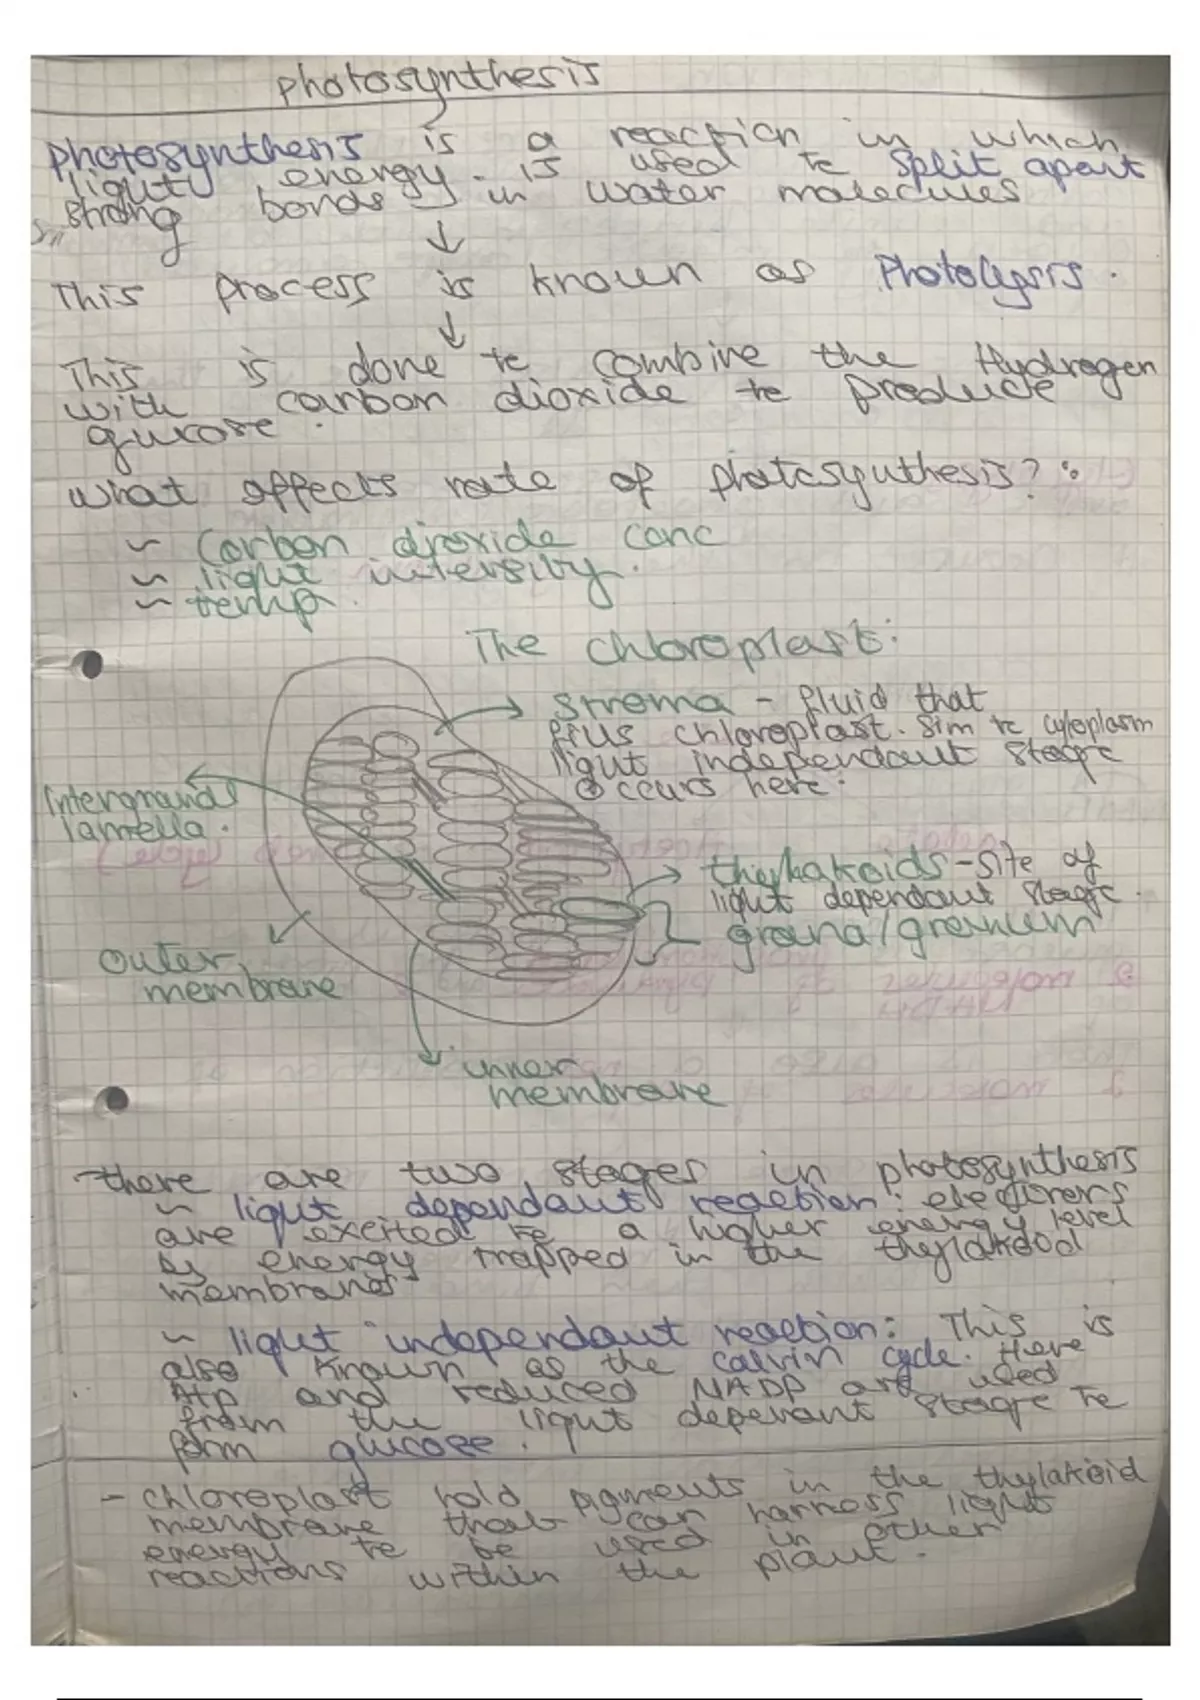 photosynthesis
photosynthesis is a reaction in which
light energy is used to split apart
strong bonds in water molecules
This process is known as Photolysis.
This is done to combine the Hydrogen
with carbon dioxide to produce
glucose.
what affects rate of photosynthesis?:
~ Carbon dioxide conc
~ light intensity.
~ temp.
The chloroplast:
stroma - fluid that
fills chloroplast. Sim to cytoplasm
light independant stage
occurs here.
Intergranal
lamella.
thylakoids - site of
light dependant stage.
grana/granum
outer
membrane
inner
membrane
- there are two stages in photosynthesis
~ light dependant reaction: electrons
are excited to a higher energy level
by energy trapped in the thylakoid
membranes
~ light independant reaction: This is
also known as the calvin cycle. Here
Atp and reduced NADP are used
from the light dependant stage to
form glucose.
- chloroplast hold pigments in the thylakoid
membrane that can harness light
energy to be used in other
reactions within the plant.